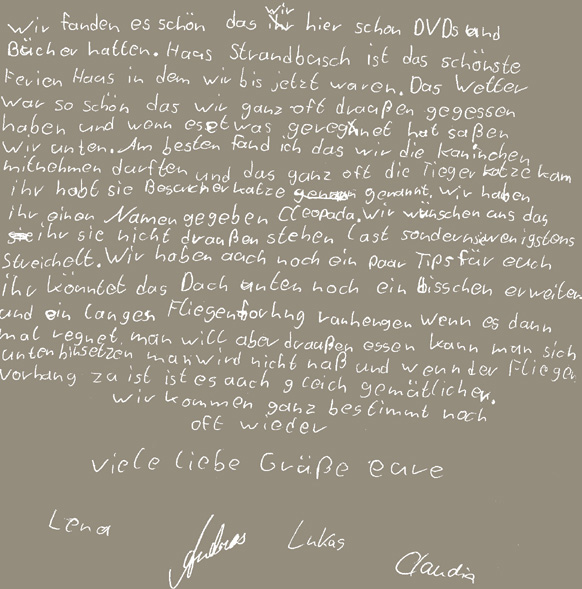 Wir fanden es schön das wir hier schon DVDs und
Bücher hatten. Haus Strandbusch ist das schönste
Ferien Haus in dem wir bis jetzt waren. Das Wetter
war so schön das wir ganz oft draußen gegessen
haben und wenn es etwas geregnet hat saßen
wir unten. Am besten fand ich das wir die kaninchen
mitnehmen durften und das ganz oft die Tieger katze kam
ihr habt sie Besucherkatze genannt. Wir haben
ihr einen Namen gegeben Cleopada. Wir wünschen uns das
ihr sie nicht draußen stehen last sondern sie wenigstens
streichelt. Wir haben auch noch ein paar Tips für euch
ihr könntet das Dach unten noch ein bisschen erweiten
und ein langen Fliegenforhng ranhengen wenn es dann
mal regnet. man will aber draußen essen kann man sich
unten hinsetzen man wird nicht naß und wenn der Fliegen
vorhang zu ist ist es auch gleich gemütlicher.
wir kommen ganz bestimmt noch
oft wieder
viele liebe Grüße eure
Lena Andreas Lukas Claudia